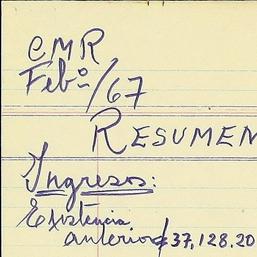 CMR
Feb°/67
RESUMEN
Ingresos:
Existencia
anterior $37,128.20